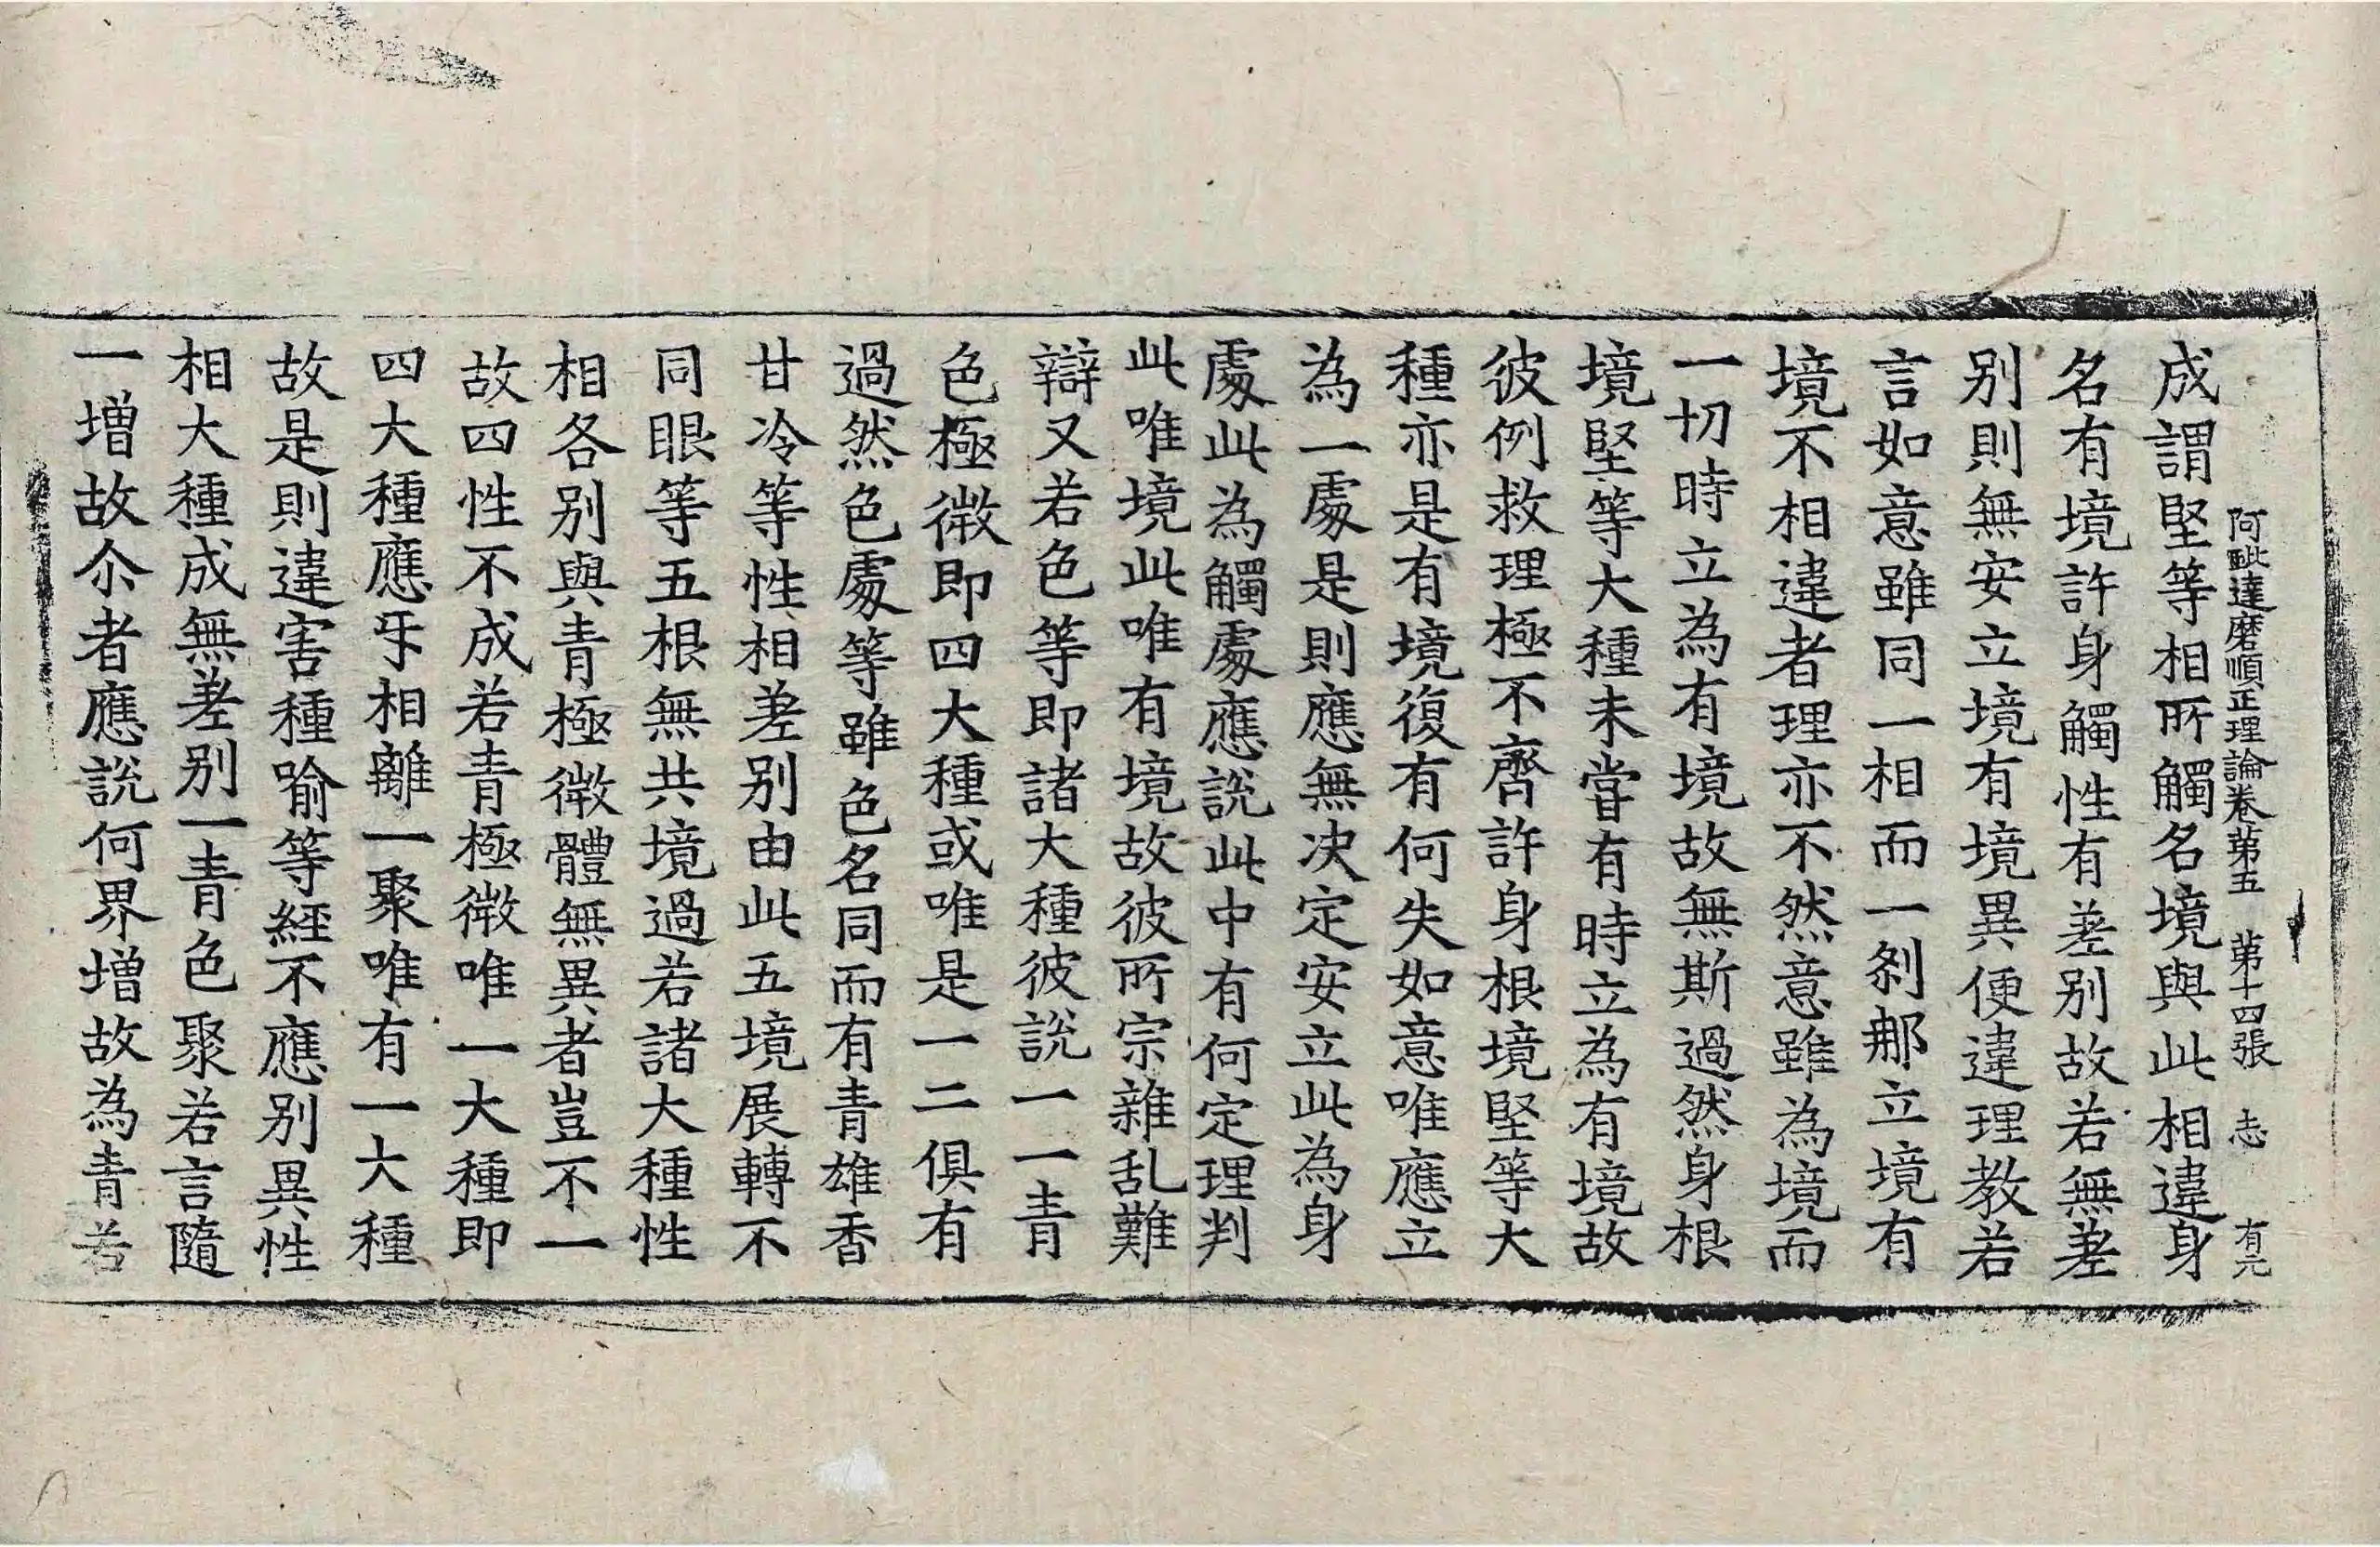 阿毗達磨順正理論卷第五　第十四張　志　有元
成謂堅等相所觸名境與此相違身
名有境許身觸性有差别故若無差
别則無安立境有境異便違理教若
言如意雖同一相而一刹那立境有
境不相違者理亦不然意雖為境而
一切時立為有境故無斯過然身根
境堅等大種未甞有時立為有境故
彼例救理極不齊許身根境堅等大
種亦是有境復有何失如意唯應立
為一處是則應無决定安立此為身
處此為觸處應說此中有何定理判
此唯境此唯有境故彼所宗雜乱難
辯又若色等即諸大種彼說一一青
色極微即四大種或唯是一二俱有
過然色處等雖色名同而有青雄香
甘冷等性相差别由此五境展轉不
同眼等五根無共境過若諸大種性
相各别與青極微體無異者豈不一
故四性不成若青極微唯一大種即
四大種應㸦相離一聚唯有一大種
故是則違害種喻等經不應别異性
相大種成無差别一青色聚若言隨
一增故尒者應說何界增故為青若